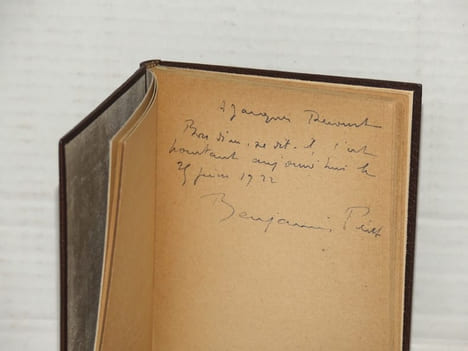 A Jacques
Bon dieu, se dit-il c'est
pourtant aujourd'hui le
25 1922
Benjamin Péret